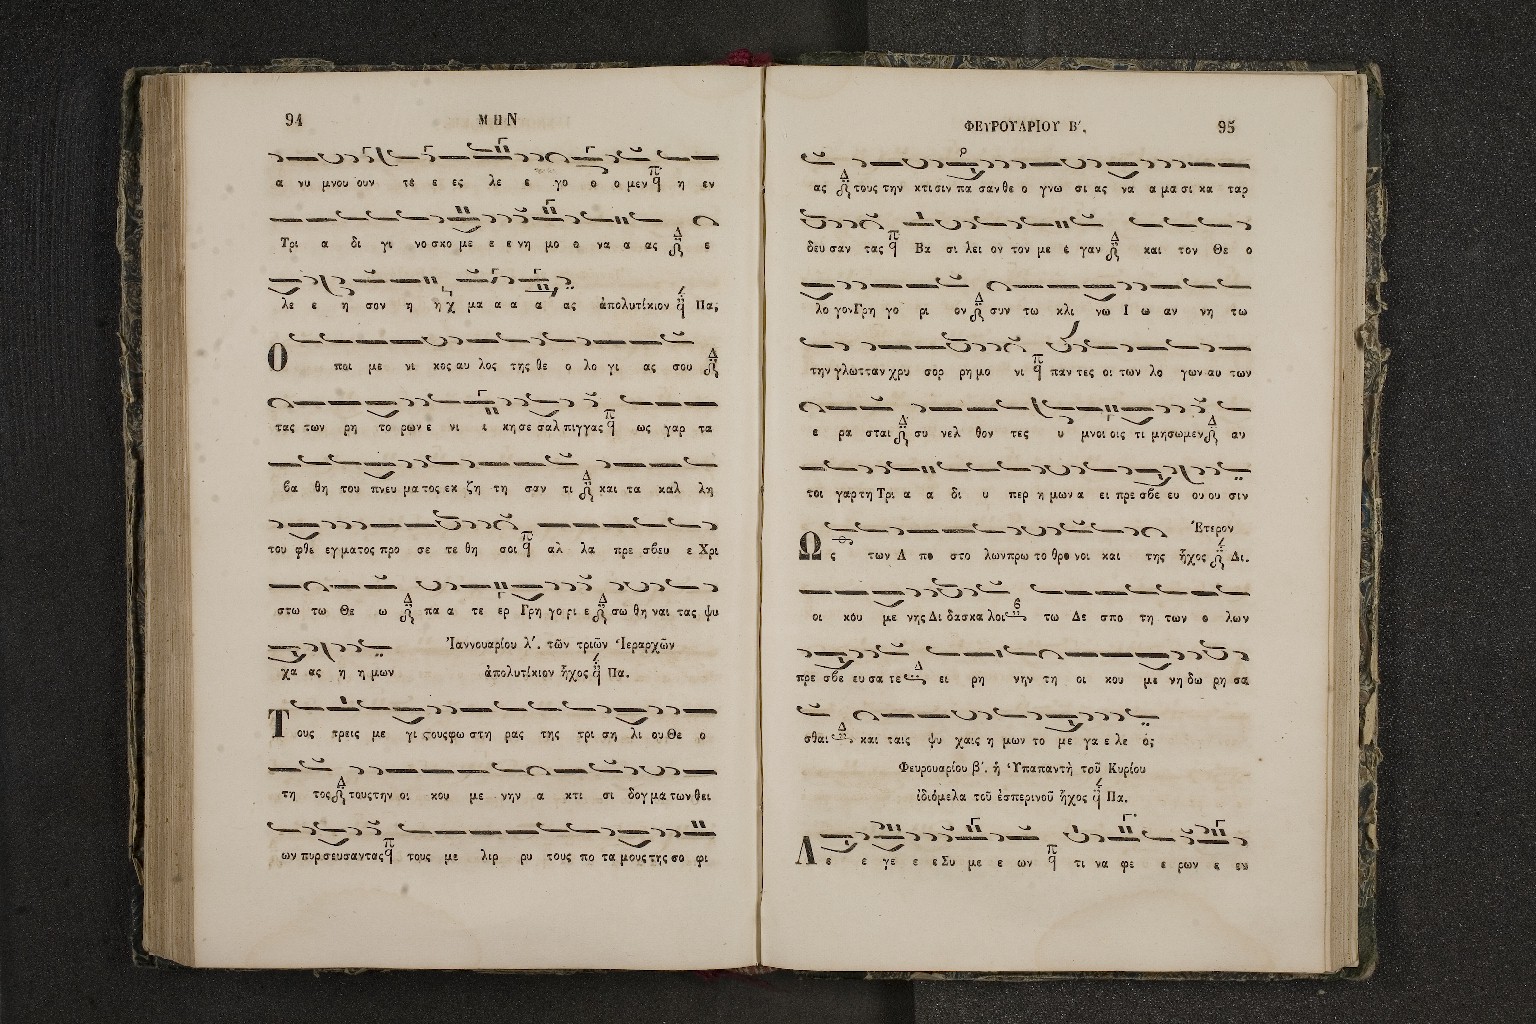 94 ΜΗΝ
α νυ μνου ουν τε ε ες λε ε γο ο ο μεν η εν
Τρι α δι γι νο σκο με ε ε νη μο ο να α ας ε
λε ε η σον η ηχ μα α α α ας ἀπολυτίκιον Πα;
Ο ποι με νι κος αυ λος της θε ο λο γι ας σου
τας των ρη το ρων ε νι ι κη σε σαλ πιγγας ως γαρ τα
βα θη του πνευ μα τος εκ ζη τη σαν τι και τα καλ λη
του φθε εγ ματος προ σε τε θη σοι αλ λα πρε σβευ ε Χρι
στω τω Θε ω πα α τε ερ Γρη γο ρι ε σω θη ναι τας ψυ
χα ας η η μων
Ἰαννουαρίου λ΄. τῶν τριῶν Ἱεραρχῶν
ἀπολυτίκιον ἦχος Πα.
Τ ους τρεις με γι ςους φω στη ρας της τρι ση λι ου Θε ο
τη τος τους την οι κου με νην α κτι σι δογ μα των θει
ων πυρ σευσαντας τους με λιρ ρυ τους πο τα μους της σο φι
ΦΕΥΡΟΥΑΡΙΟΥ Β΄. 95
ας τους την κτι σιν πα σαν θε ο γνω σι ας να α μα σι κα ταρ
δευ σαν τας Βα σι λει ον τον με ε γαν και τον Θε ο
λο γον Γρη γο ρι ον συν τω κλι νω Ι ω αν νη τω
την γλωτταν χρυ σορ ρη μο νι παν τες οι των λο γων αυ των
ε ρα σται συ νελ θον τες υ μνοι οις τι μησωμεν αυ
τοι γαρ τη Τρι α α δι υ περ η μων α ει πρε σβε ευ ου ου σιν
Ἕτερον
Ω ς των Α πο στο λων πρω το θρο νοι και της ἦχος Δι.
οι κου με νης Δι δασκα λοι τω Δε σπο τη των ο λων
πρε σβε ευ σα τε ει ρη νην τη οι κου με νη δω ρη σα
σθαι και ταις ψυ χαις η μων το με γα ε λε ό;
Φευρουαρίου β΄. ἡ Ὑπαπαντὴ τοῦ Κυρίου
ἰδιόμελα τοῦ ἑσπερινοῦ ἦχος Πα.
Λ ε ε γε ε ε Συ με ε ων τι να φε ε ρων ε εν